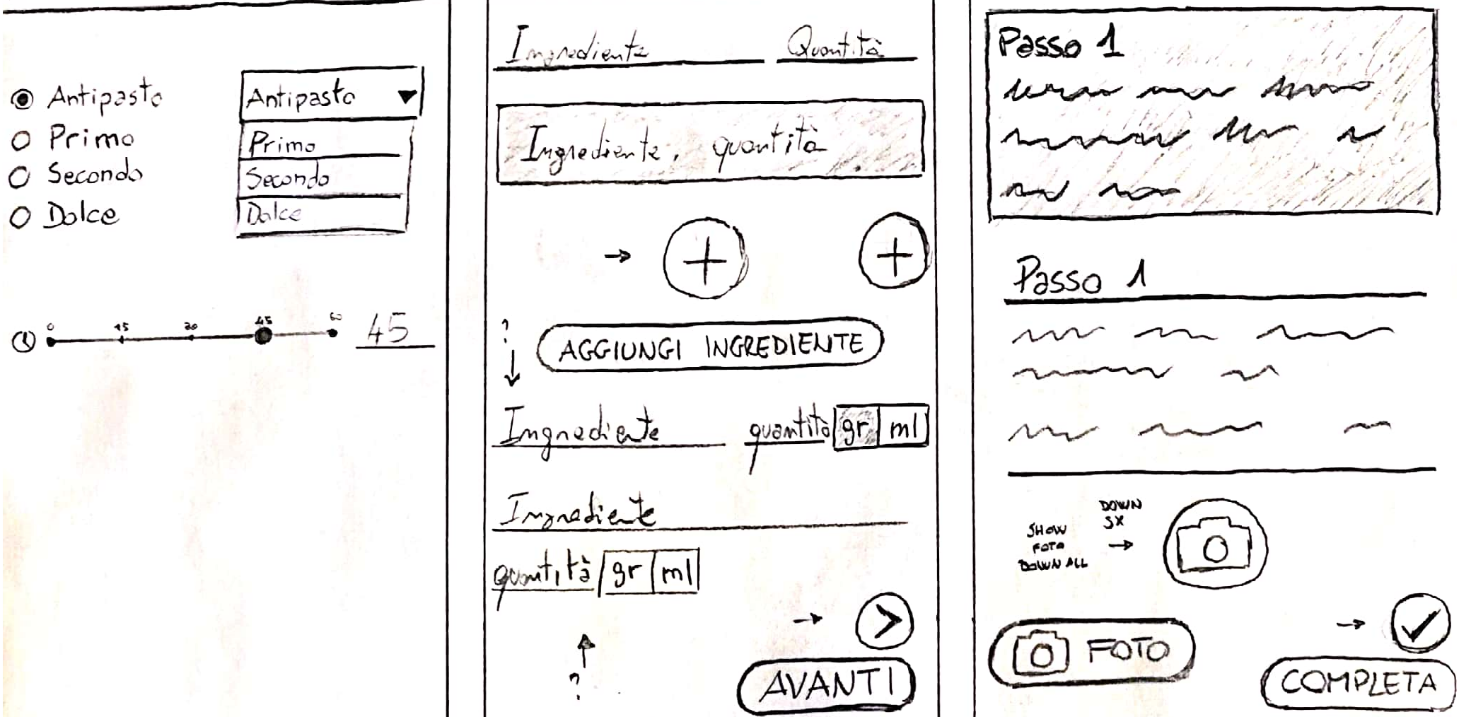 Antipasto
Primo
Secondo
Dolce
Antipasto
Primo
Secondo
Dolce
0 15 30 45 60
45
Ingrediente Quantità
Ingrediente, quantità
?
AGGIUNGI INGREDIENTE
Ingrediente quantità gr ml
Ingrediente
quantità gr ml
?
AVANTI
Passo 1
Passo 1
SHOW
FOTO
DOWN ALL
DOWN
SX
FOTO
COMPLETA